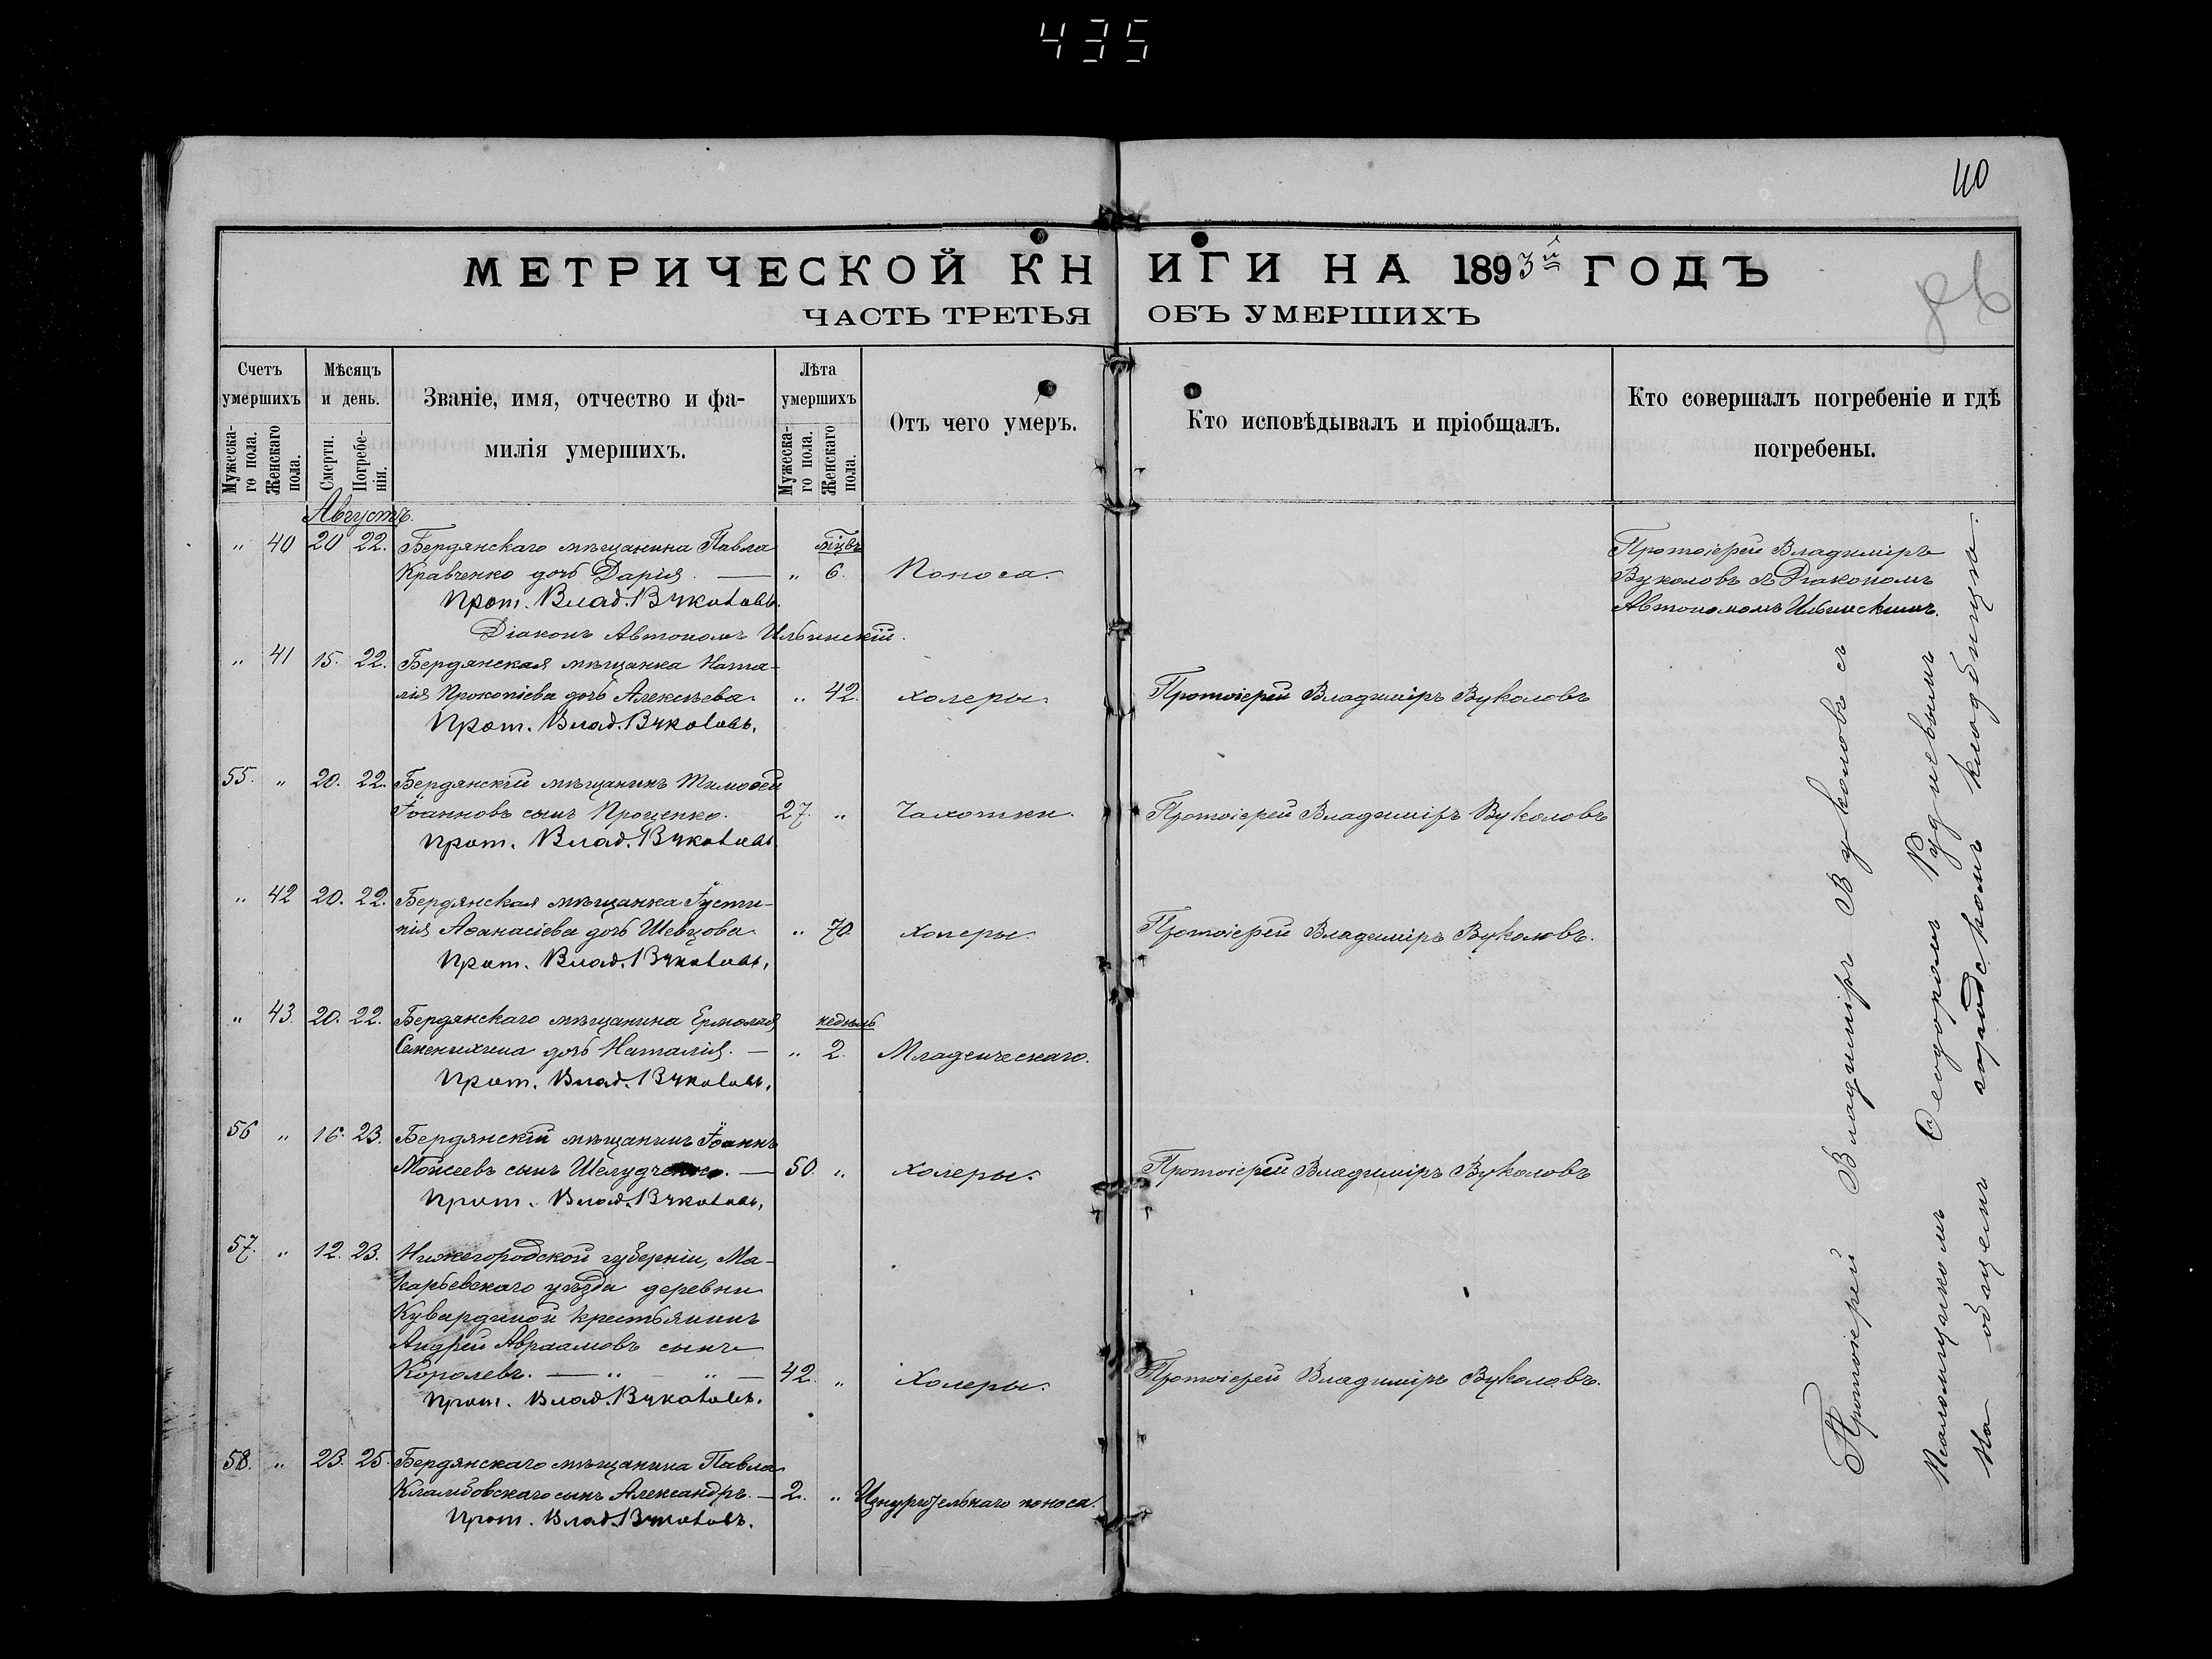 435
110
МЕТРИЧЕСКОЙ КНИГИ НА 1893й ГОДЪ
ЧАСТЬ ТРЕТЬЯ ОБЪ УМЕРШИХЪ
Счетъ умершихъ
Мужескаго пола.
Женскаго пола.
Мѣсяцъ и день.
Смерти.
Погребенія.
Званіе, имя, отчество и фамилія умершихъ.
Лѣта умершихъ
Мужескаго пола.
Женскаго пола.
Отъ чего умеръ.
Кто исповѣдывалъ и пріобщалъ.
Кто совершалъ погребеніе и гдѣ погребены.
Августъ.
" 40 20 22. Бердянскаго мѣщанина Павла мѣцвъ Протоіерей Владиміръ
Кравченко дочь Дарія. — " 6. Поноса. Вуколовъ съ Діакономъ
Прот. Влад. Вуколовъ. Автономомъ Ильинскимъ.
Діаконъ Автономъ Ильинскій.
" 41 15. 22. Бердянская мѣщанка Ната-
лія Прокопіева дочь Алексѣева. " 42. холеры. Протоіерей Владиміръ Вуколовъ
Прот. Влад. Вуколовъ.
55. " 20. 22. Бердянскій мѣщанинъ Тимоѳей
Іоанновъ сынъ Проценко. 27. " Чахотки. Протоіерей Владиміръ Вуколовъ
Прот. Влад. Вуколовъ.
" 42 20. 22. Бердянская мѣщанка Іусти-
нія Аѳанасіева дочь Шевцова. " 70. холеры. Протоіерей Владиміръ Вуколовъ.
Прот. Влад. Вуколовъ.
" 43. 20. 22. Бердянскаго мѣщанина Ермолая недѣль
дочь Наталія. — " 2. Младенческаго.
Прот. Влад. Вуколовъ.
56 " 16. 23. Бердянскій мѣщанинъ Іоаннъ
Моисеевъ сынъ Шелудченко. — 50. " холеры. Протоіерей Владиміръ Вуколовъ
Прот. Влад. Вуколовъ.
57. " 12. 23. Нижегородской губерніи, Ма-
карьевскаго уѣзда деревни
Кувардиной крестьянинъ
Андрей Авраамовъ сынъ
Королевъ. — " — " — 42. " Холеры. Протоіерей Владиміръ Вуколовъ.
Прот. Влад. Вуколовъ.
58. " 23. 25. Бердянскаго мѣщанина Павла
сынъ Александръ. — 2. " Изнурительнаго поноса.
Прот. Влад. Вуколовъ.
Протоіерей Владиміръ Вуколовъ съ
Псаломщикомъ Ѳеодоромъ Рудневымъ
На общемъ городскомъ кладбищѣ.